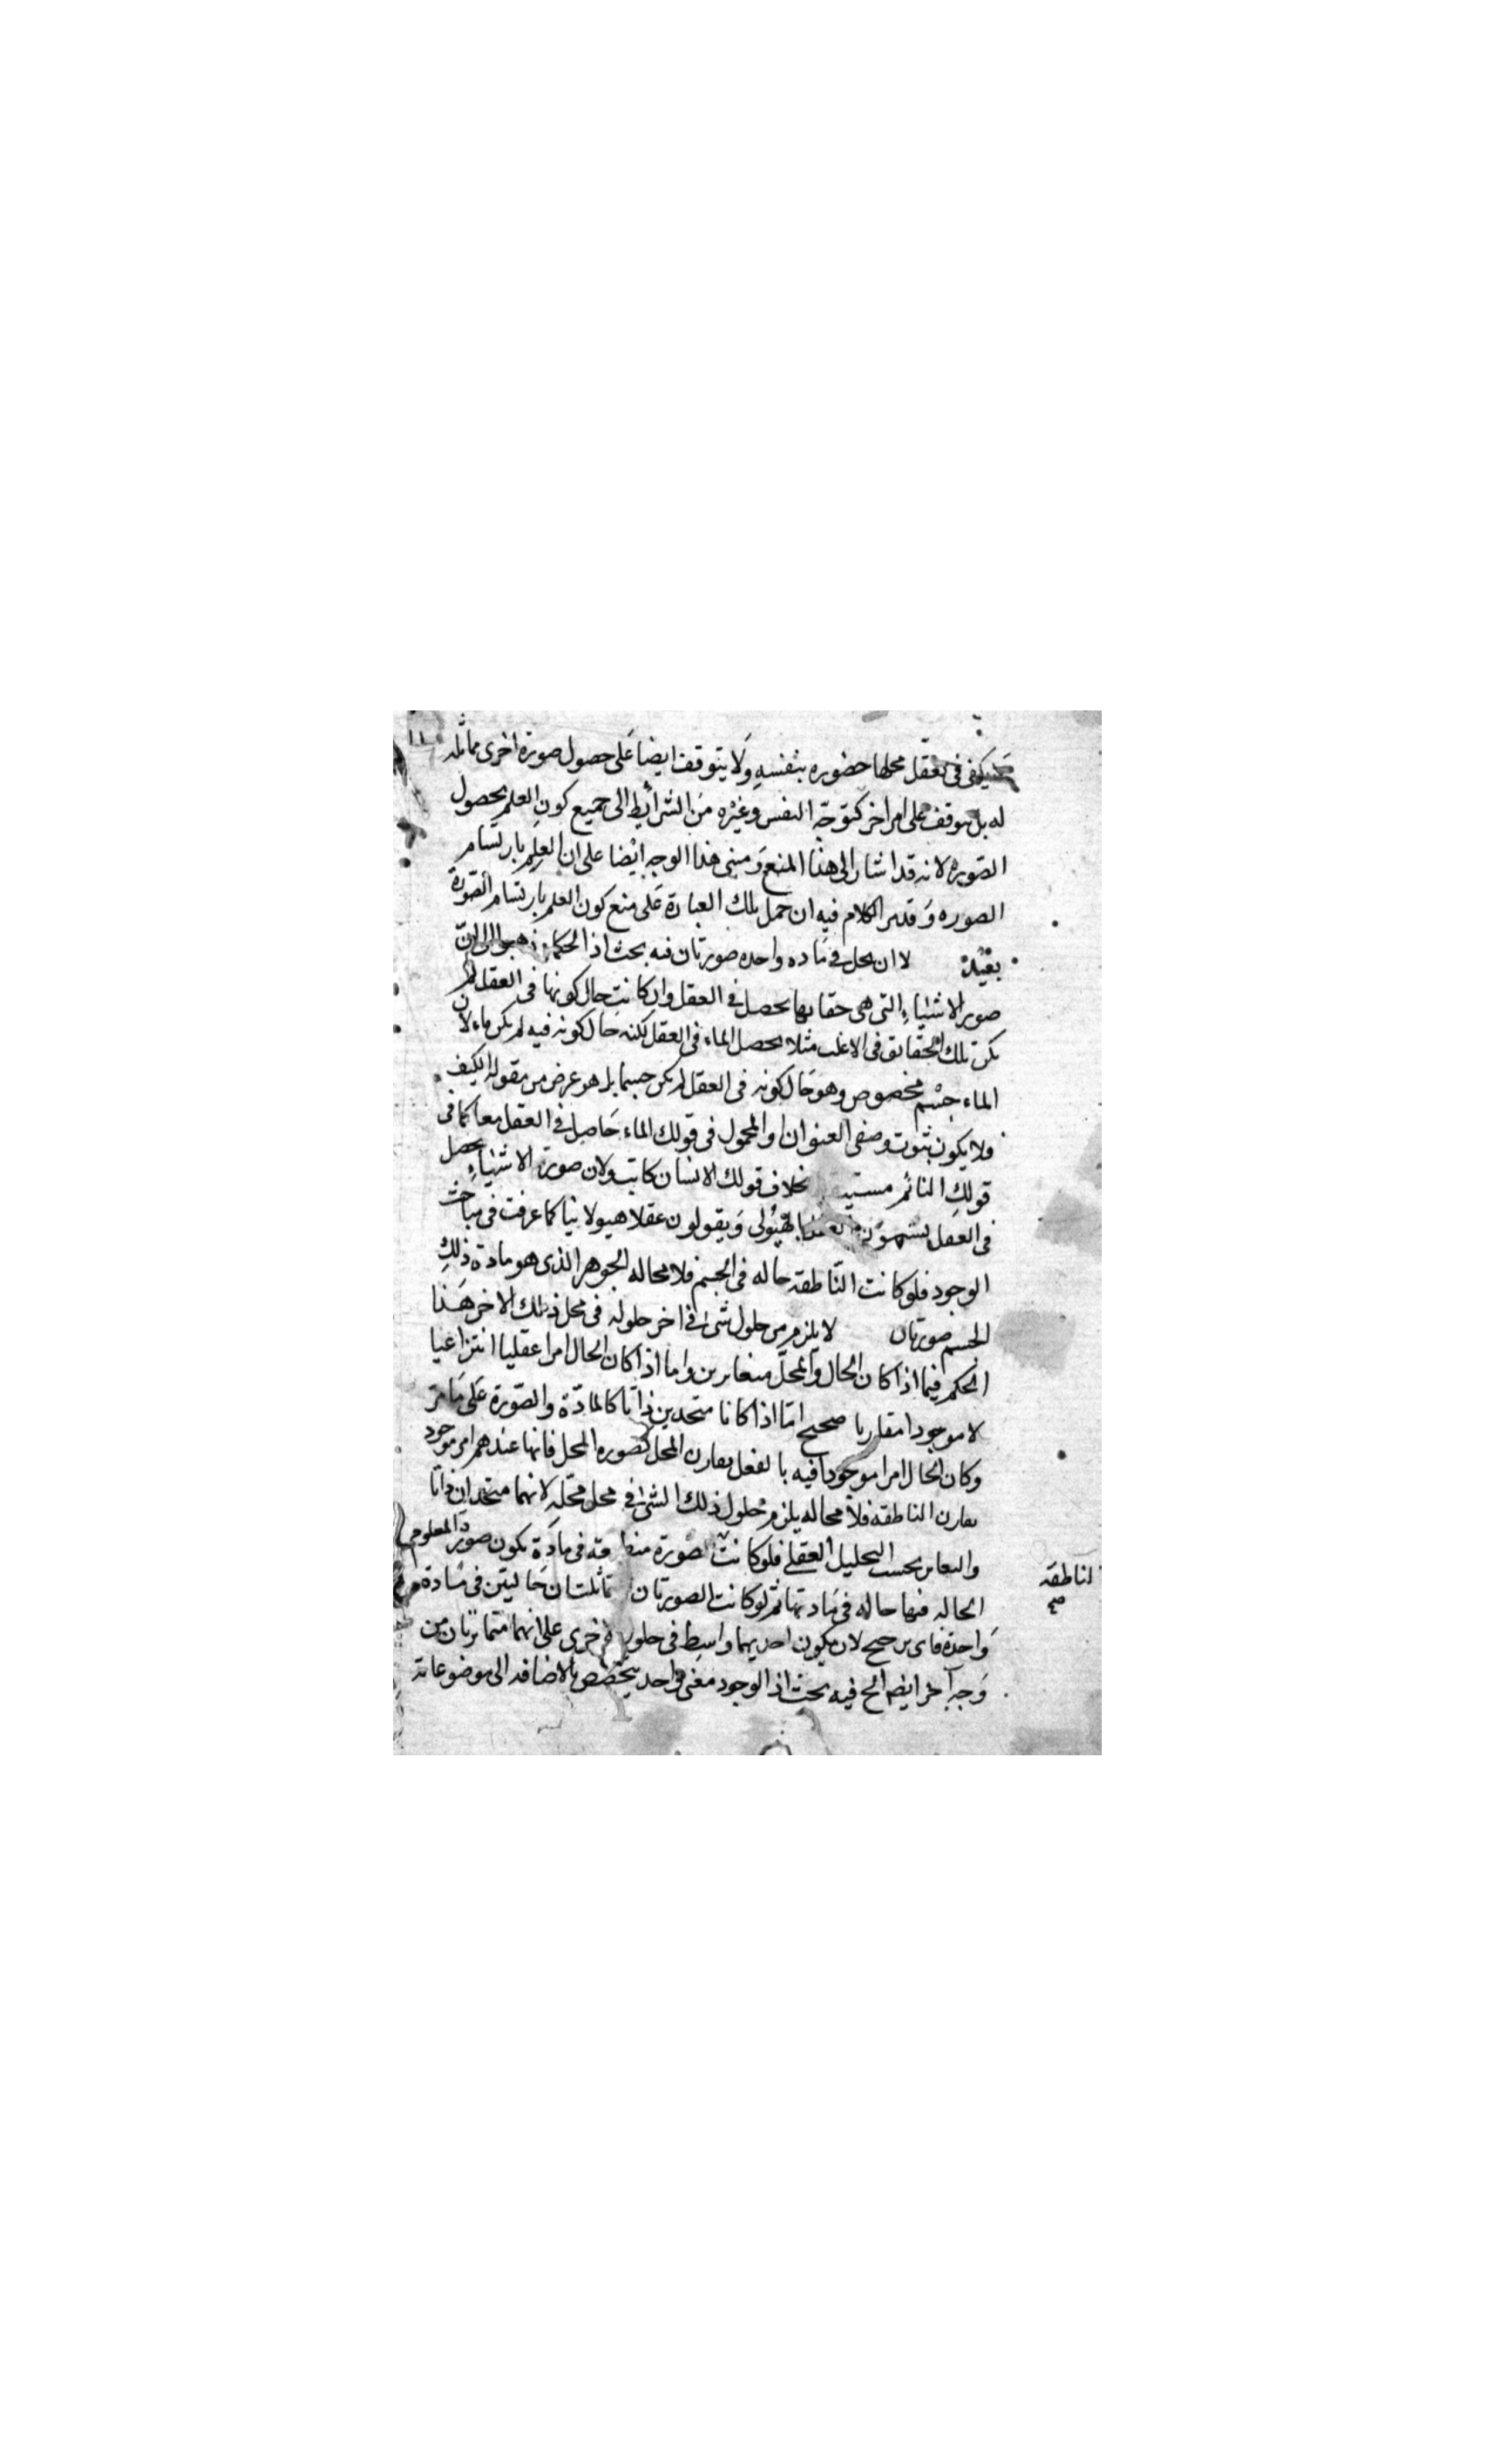 يكفى فى تعقل محلها حضوره بنفسه ولا يتوقف ايضا على حصول صورة اخرى مماثله
له بل يتوقف على امر اخر كتوجّه النفس وغيره من الشرائط الى جميع كون العلم بحصول
الصورة لانه قد اشار الى هذا المنع ومبنى هذا الوجه ايضا على ان العلم بارتسام
الصوره وقد مر الكلام فيه ان حمل تلك العبارة على منع كون العلم بارتسام الصّورة
بعينه لا ان يحل فى ماده واحده صورتان فيه بحث اذ الحكماء ذهبوا الى انّ
صور الاشياء التى هى حقايقها يحصل فى العقل وان كانت حال كونها فى العقل لم
يكن تلك الحقايق فى الاغلب مثلا يحصل الماء فى العقل لكنه حال كونه فيه لم يكن ماء لان
الماء جسم مخصوص وهو حال كونه فى العقل لم يكن جسما بل هو عرض من مقوله الكيف
فلا يكون ثبوت وصفى العنوان والمحمول فى قولك الماء حاصل فى العقل معا كما فى
قولك النائم مستيقظ بخلاف قولك الانسان كاتب ولان صورة الاشياء يحصل
فى العقل يسمون بالهيولى ويقولون عقلا هيولانيا كما عرفت فى مباحث
الوجود فلو كانت النّاطقه حاله فى الجسم فلا محاله الجوهر الذى هو مادة ذلك
الجسم صورتان لا يلزم من حلول شئ فى اخر حلوله فى محل ذلك الاخر هذا
الحكم فيما اذا كان الحال والمحلّ متغايرين واما اذا كان الحال امرا عقليا انتزاعيا
لا موجودا مقارنا صحيح امّا اذا كانا متحدين ذاتا كالمادّة والصّورة على ما مر
وكان الحال امرا موجودا فيه بالفعل يقارن المحل كصوره المحل فانها عندهم امر موجود
يقارن الناطقه فلا محاله يلزم حلول ذلك الشئ فى محل محلّه لانهما متحدان ذاتا
والتغاير بحسب التحليل العقلى فلو كانت صورة منطبعة فى مادّة يكون صورة المعلوم
الحاله فيها حاله فى مادتها ثم لو كانت الصورتان متماثلتان حاليتين فى مادة
واحدة فاى ترجيح لان يكون احديهما واسط فى حلول الاخرى على انهما متمايزتان من
وجه آخر ايضا الخ فيه بحث اذ الوجود معنى واحد يتخصّص بالاضافه الى موضوعاته
الناطقه
صح